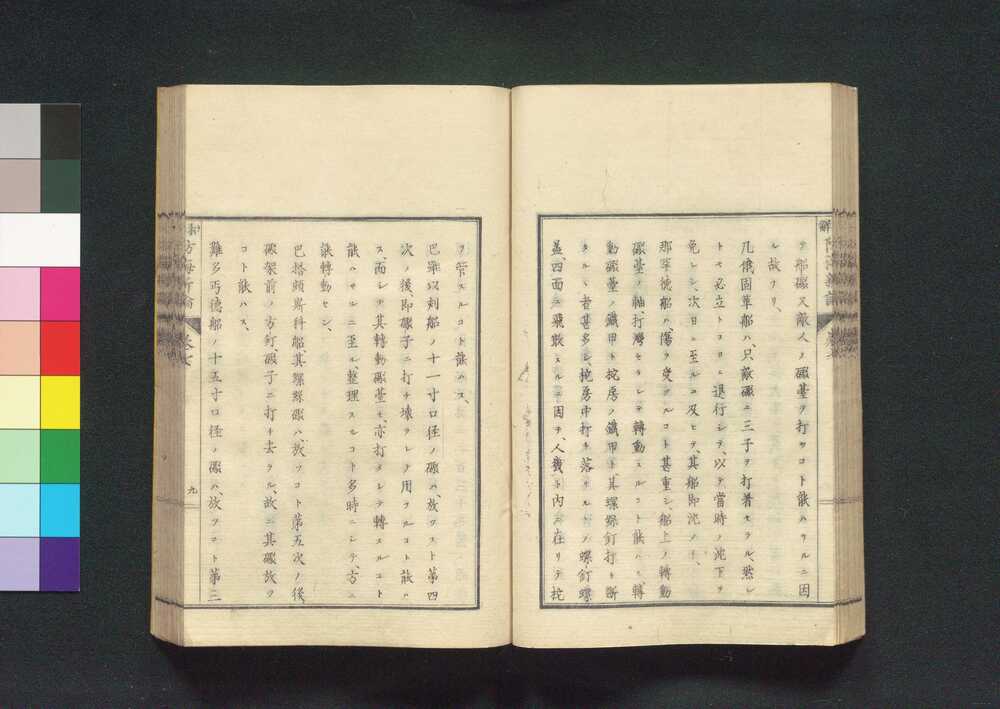 テ船礮又敵人ノ礮臺ヲ打ツコト能ハサルニ因
ル故ナリ、
凡俄固革船ハ、只敵礮ニ三子ヲ打着セラル、然レ
トモ必立トコロニ退行シテ、以テ當時ノ沈下ヲ
免レシ、次日ニ至ルニ及ヒテ、其船即沈ノリ、
那罕德船ハ、傷ヲ受クルコト甚重シ、船上ノ轉動
礮臺ノ軸、打灣セラレテ轉動スルコト能ハス、轉
動礮臺ノ鐵甲ト、㧞房ノ鐵甲ト、其螺絲釘打チ斷
タルヽ者甚多シ、房中打チ落サルヽノ螺釘螺
蓋、四面ニ飛散スルニ因テ、人幾ト內ニ在リテ
ヲ管スルコト能ハス、
巴羅以刻船ノ十一寸口徑ノ礮ハ、放ツコト第四
次ノ後、即礮子ニ打チ壞ラレテ用フルコト能ハ
ス、而シテ其轉動礮臺モ、亦打タレテ轉スルコト
能ハサルニ至ル、整理スルコト多時ニシテ、方ニ
能轉動セシ、
巴搭頗斯科船其螺絲礮ハ、放ツコト第五次ノ後、
礮架前ノ方釘、礮子ニ打チ去ラル、故ニ其礮放ツ
コト能ハス、
難多丐德船ノ十五寸口徑ノ礮ハ、放ツコト第三
九